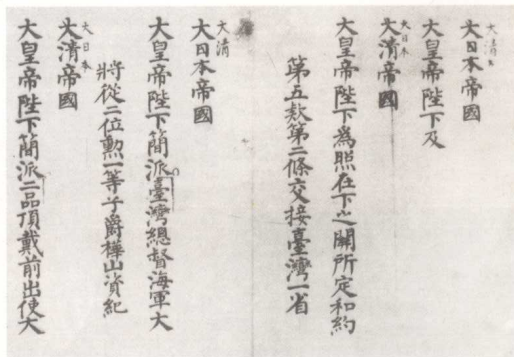 大清大
大日本帝國
大皇帝陛下及
大日本
大清帝國
大皇帝陛下爲照在下之關所定和約
第五款第二條交接臺灣一省
大清
大日本帝國
大皇帝陛下簡派臺灣總督海軍大
將從二位勲一等子爵樺山資紀
大日本
大清帝國
大皇帝陛下簡派二品頂戴前出使大